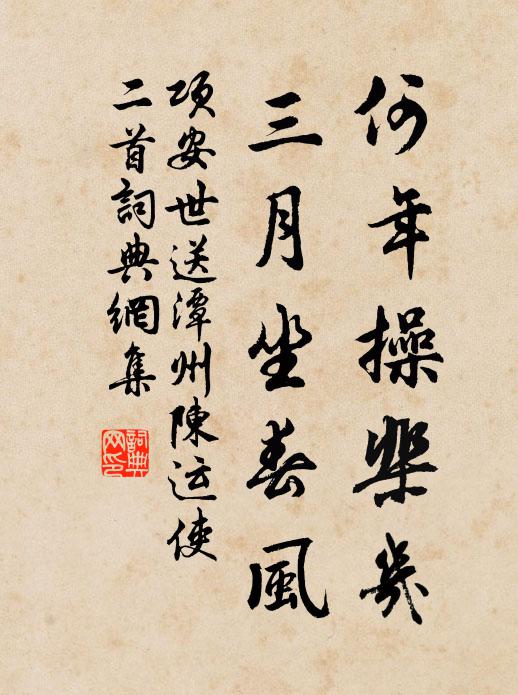 何年操棐幾
三月坐春風
項安世送潭州陳运使
二首詞典網集
詞典
网印